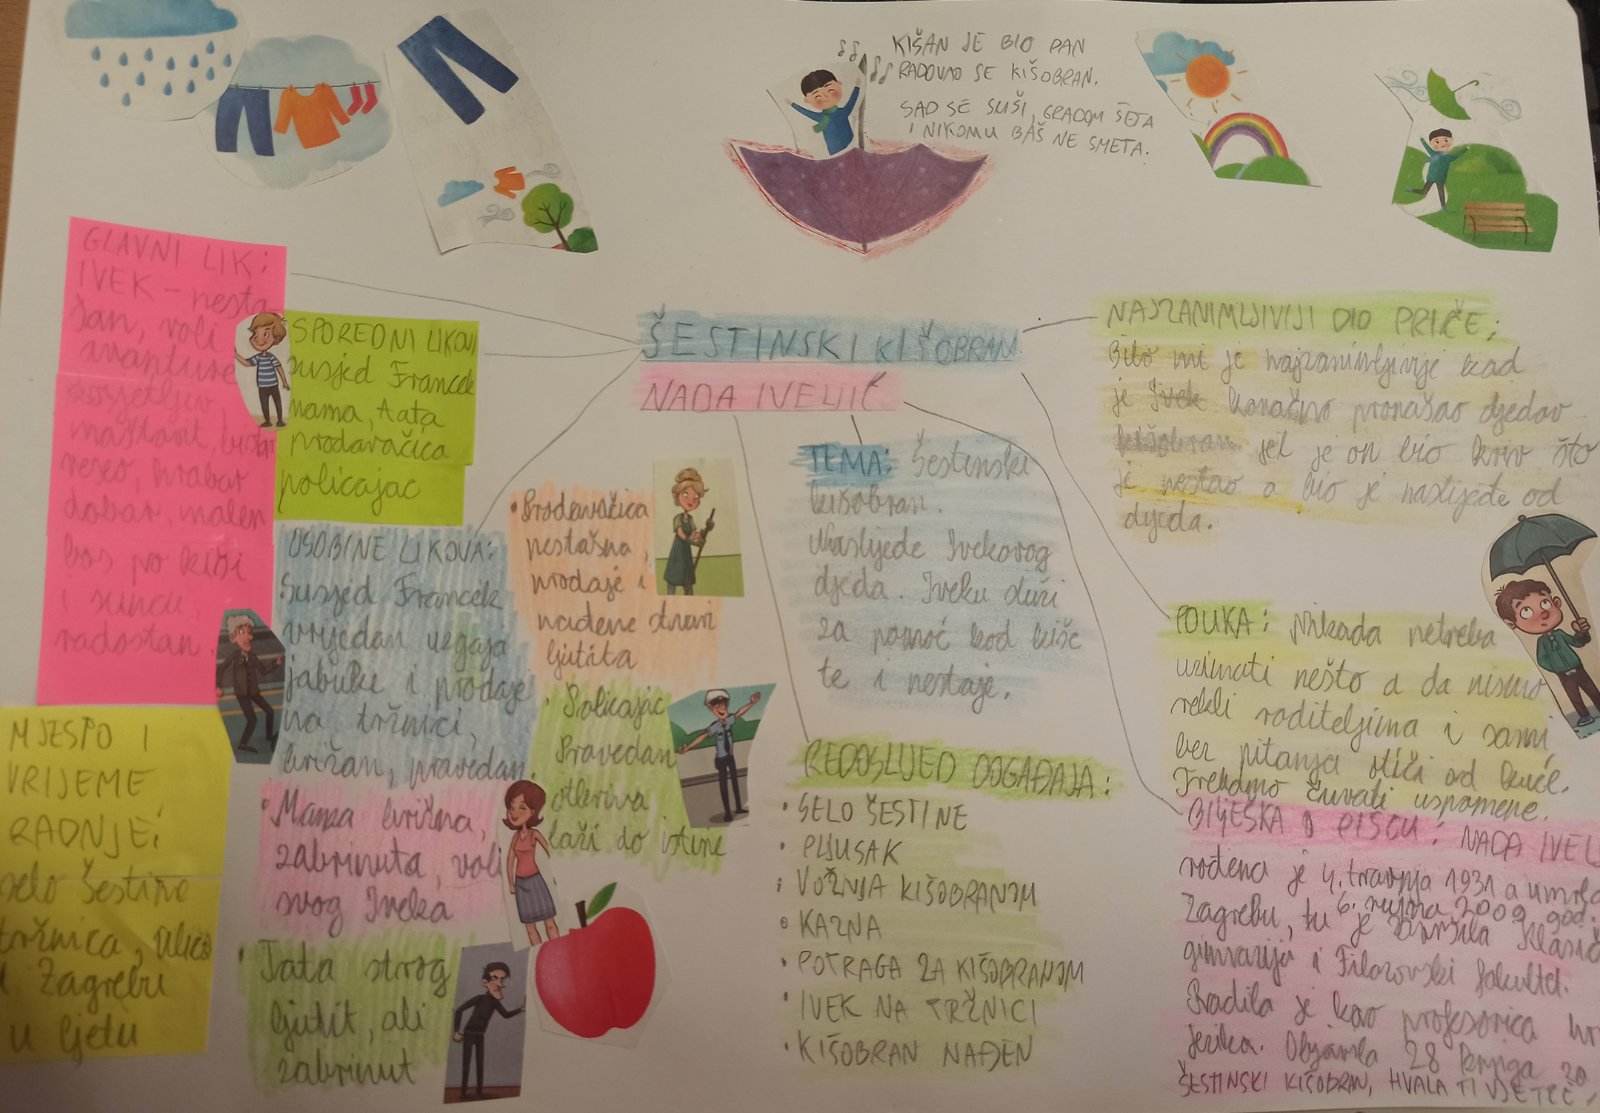 KIŠAN JE BIO DAN
RADOVAO SE KIŠOBRAN.
SAD SE SUŠI, GRADOM ŠETA
I NIKOMU BAŠ NE SMETA.
ŠESTINSKI KIŠOBRAN
NADA IVELJIĆ
GLAVNI LIK:
IVEK – nesta
šan, voli
avanture
osjetljiv
maštovit, bistar
veseo, hrabar
dobar, malen
bos po kiši
i suncu,
radostan.
SPOREDNI LIKOVI
susjed Francek
mama, tata
prodavačica
policajac
MJESPO I
VRIJEME
RADNJE:
selo Šestine
tržnica, ulica
u Zagrebu
u ljetu
OSOBINE LIKOVA:
Susjed Francek
vrijedan uzgaja
jabuke i prodaje
na tržnici,
brižan, pravedan.
• Mama brižna,
zabrinuta, voli
svog Iveka
• Tata strog
ljutit, ali
zabrinut
• Prodavačica
nestašna,
prodaje i
nađene stvari
ljutita
• Policajac
Pravedan
otkriva
laži do istine
TEMA: Šestinski
kišobran.
Naslijeđe Ivekovog
djeda. Iveku služi
za pomoć kod kiše
te i nestaje.
REDOSLIJED DOGAĐAJA:
• SELO ŠESTINE
• PLJUSAK
• VOŽNJA KIŠOBRANOM
• KAZNA
• POTRAGA ZA KIŠOBRANOM
• IVEK NA TRŽNICI
• KIŠOBRAN NAĐEN
NAJZANIMLJIVIJI DIO PRIČE:
Bilo mi je najzanimljivije kad
je Ivek konačno pronašao djedov
kišobran jel je on bio kriv što
je nestao a bio je naslijeđe od
djeda.
POUKA: Nikada netreba
uzimati nešto a da nismo
rekli roditeljima i sami
bez pitanja otići od kuće.
Trebamo čuvati uspomene.
BILJEŠKA O PISCU: NADA IVELJ
rođena je 4. travnja 1931 a umrla
6. rujna 2009 god.
Zagrebu, tu je završila klasič
gimnaziju i Filozofski fakultet.
Radila je kao profesorica hr
jezika. Objavila 28 knjiga
ŠESTINSKI KIŠOBRAN, HVALA TI VJETRE,